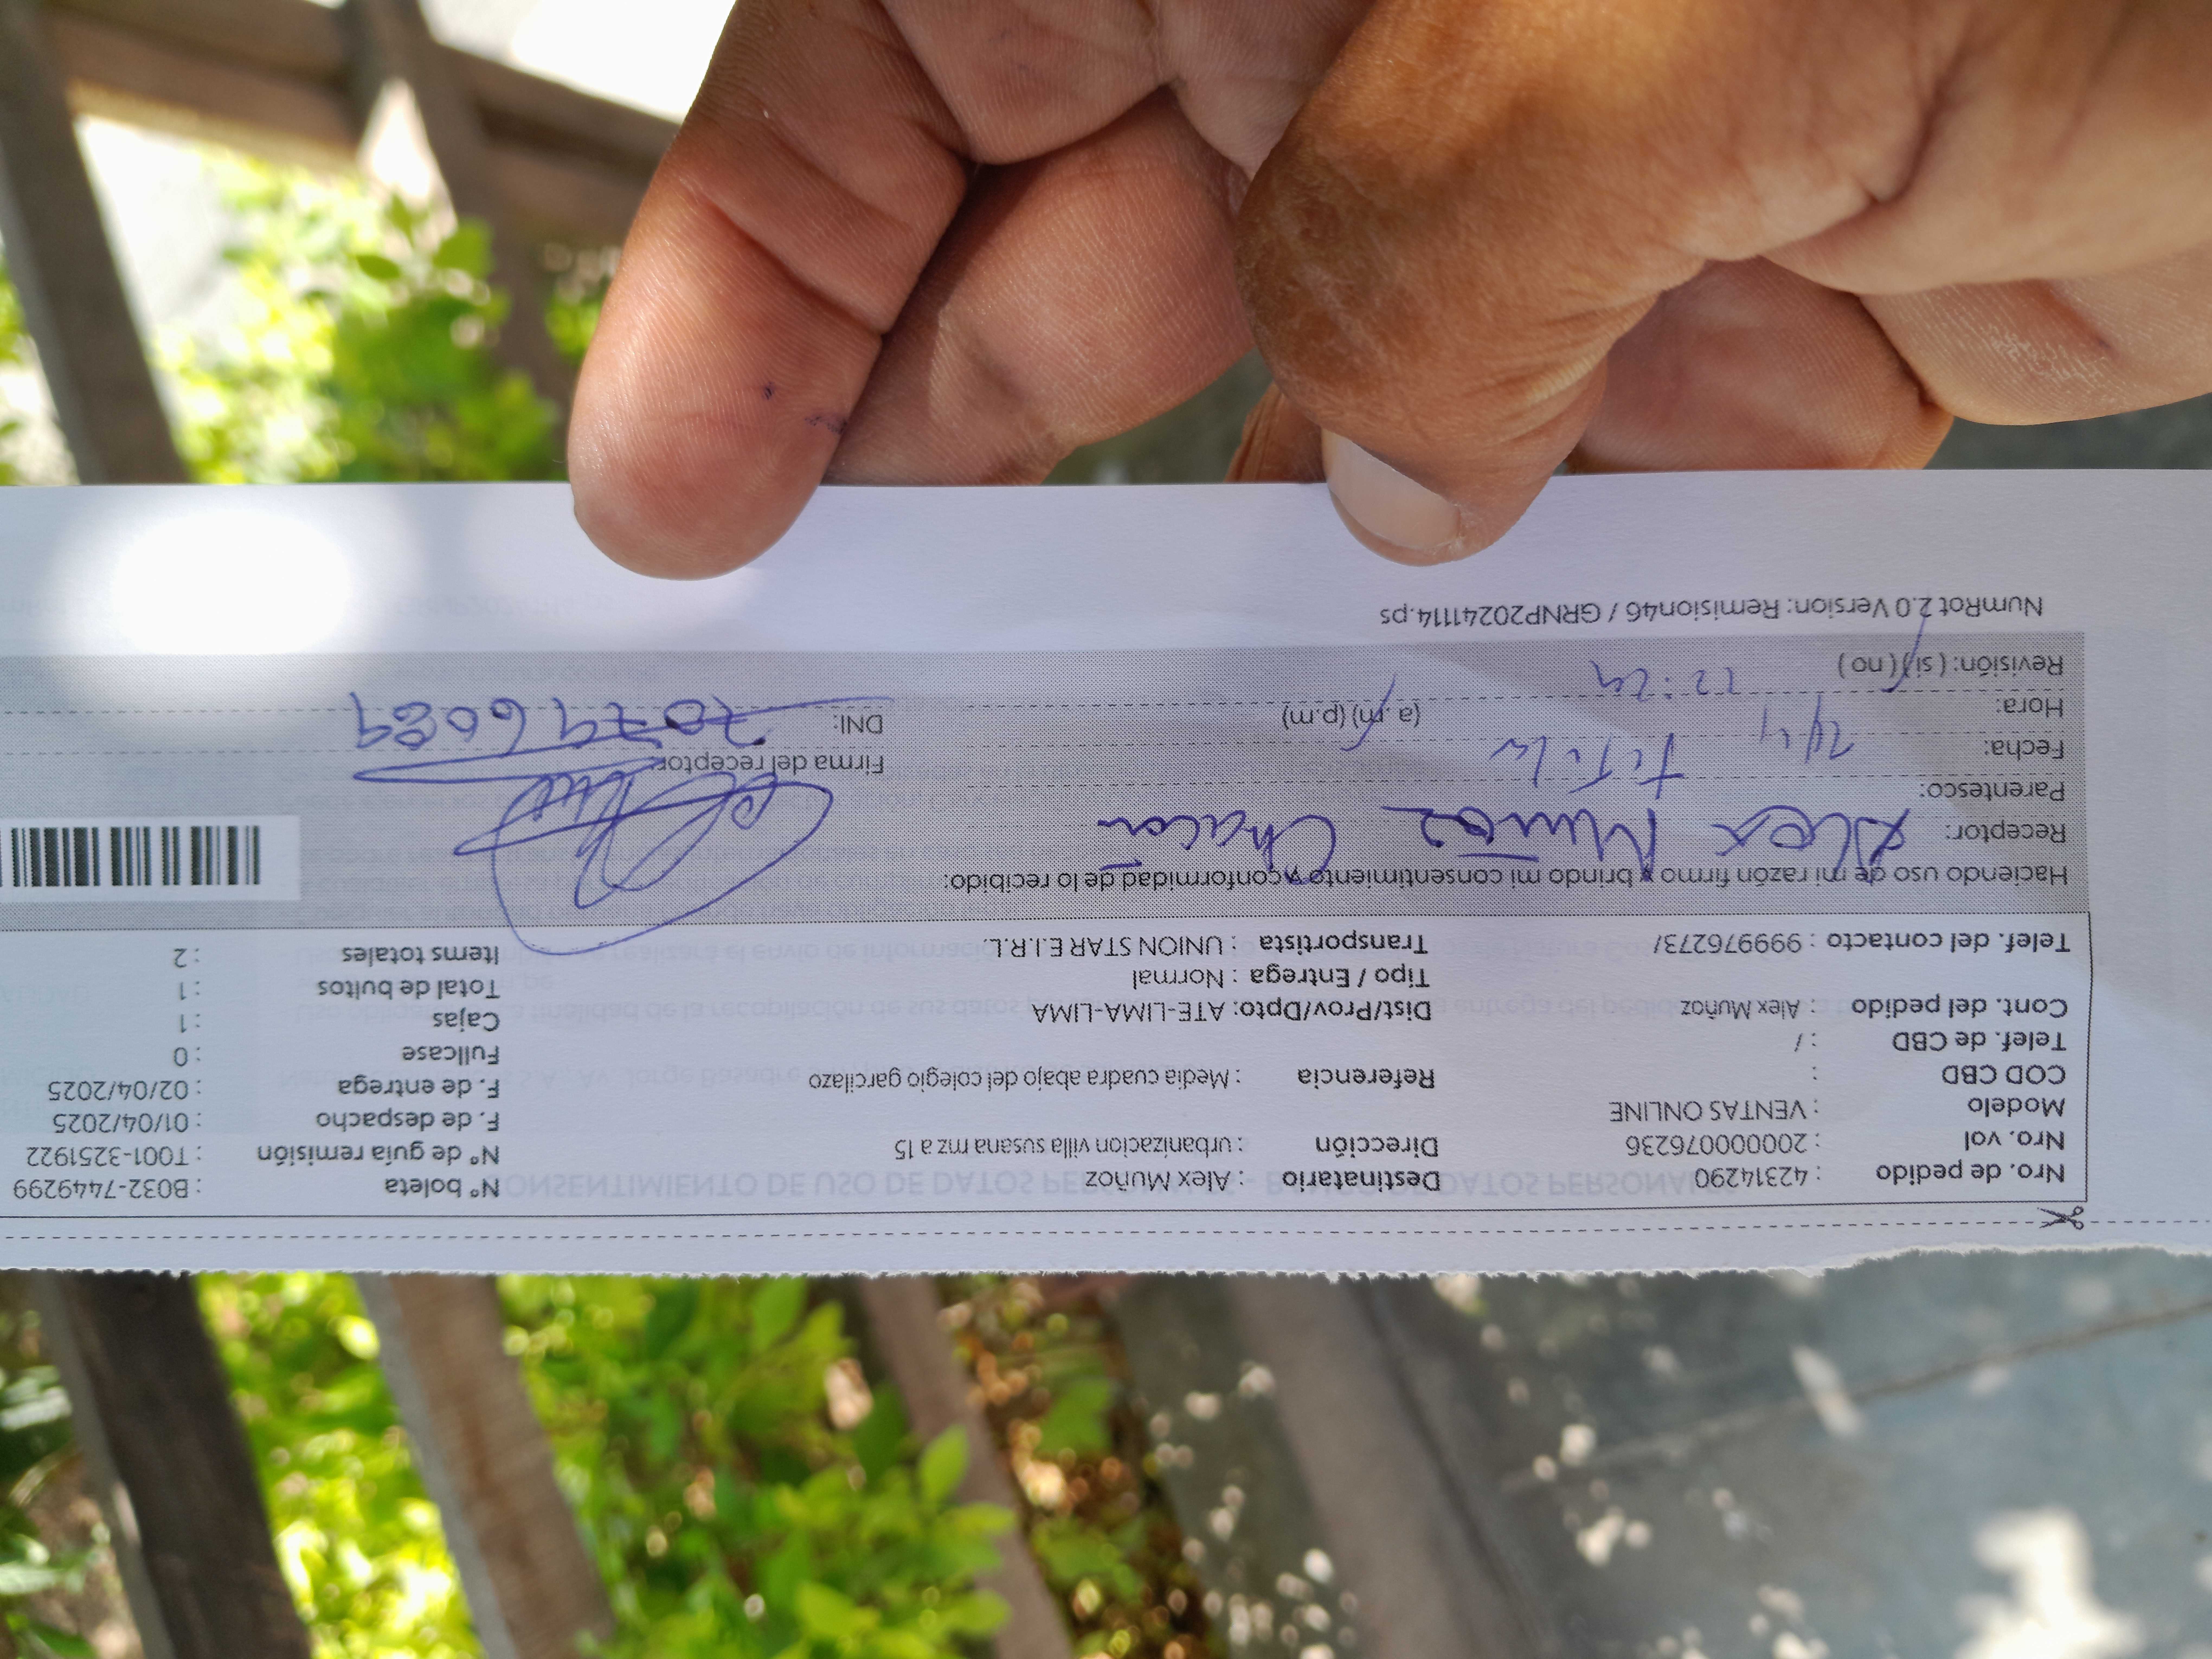 Nro. de pedido : 42314290 Destinatario : Alex Muñoz N° boleta : B032-7449299
Nro. vol : 20000076236 Dirección : urbanizacion villa susana mz a 15 N° de guía remisión : T001-3251922
Modelo : VENTAS ONLINE F. de despacho : 01/04/2025
COD CBD : Referencia : Media cuadra abajo del colegio garcilazo F. de entrega : 02/04/2025
Telef. de CBD : / Fullcase : 0
Cont. del pedido : Alex Muñoz Dist/Prov/Dpto: ATE-LIMA-LIMA Cajas : 1
Tipo / Entrega : Normal Total de bultos : 1
Telef. del contacto : 999976273/ Transportista : UNION STAR E.I.R.L. Items totales : 2
Haciendo uso de mi razón firmo y brindo mi consentimiento y conformidad de lo recibido:
Receptor: Alex Muñoz Chacon
Parentesco: titular
Fecha: 2/4 Firma del receptor
Hora: 12:24 (a.m) (p.m) DNI: 70796089
Revisión: ( si ) ( no )
NumRot 2.0 Version: Remision46 / GRNP20241114.ps